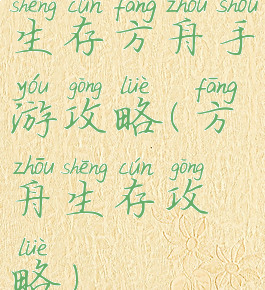 shēng cún fāng zhōu shǒu
生存方舟手
yóu gōng lüè fāng
游攻略(方
zhōu shēng cún gōng
舟生存攻
lüè
略)